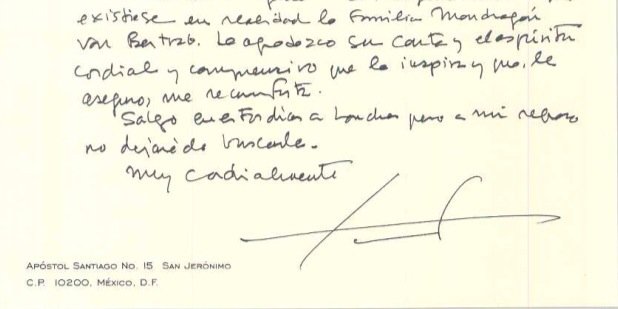 existiese en realidad la familia Mondragón
Von Bertrab. Le agradezco su carta y el espíritu
cordial y comprensivo que la inspira y que, le
aseguro, me reconforta.
Salgo en estos días a Londres pero a mi regreso
no dejaré de buscarle.
Muy cordialmente
APÓSTOL SANTIAGO NO. 15 SAN JERÓNIMO
C.P. 10200, MÉXICO, D.F.